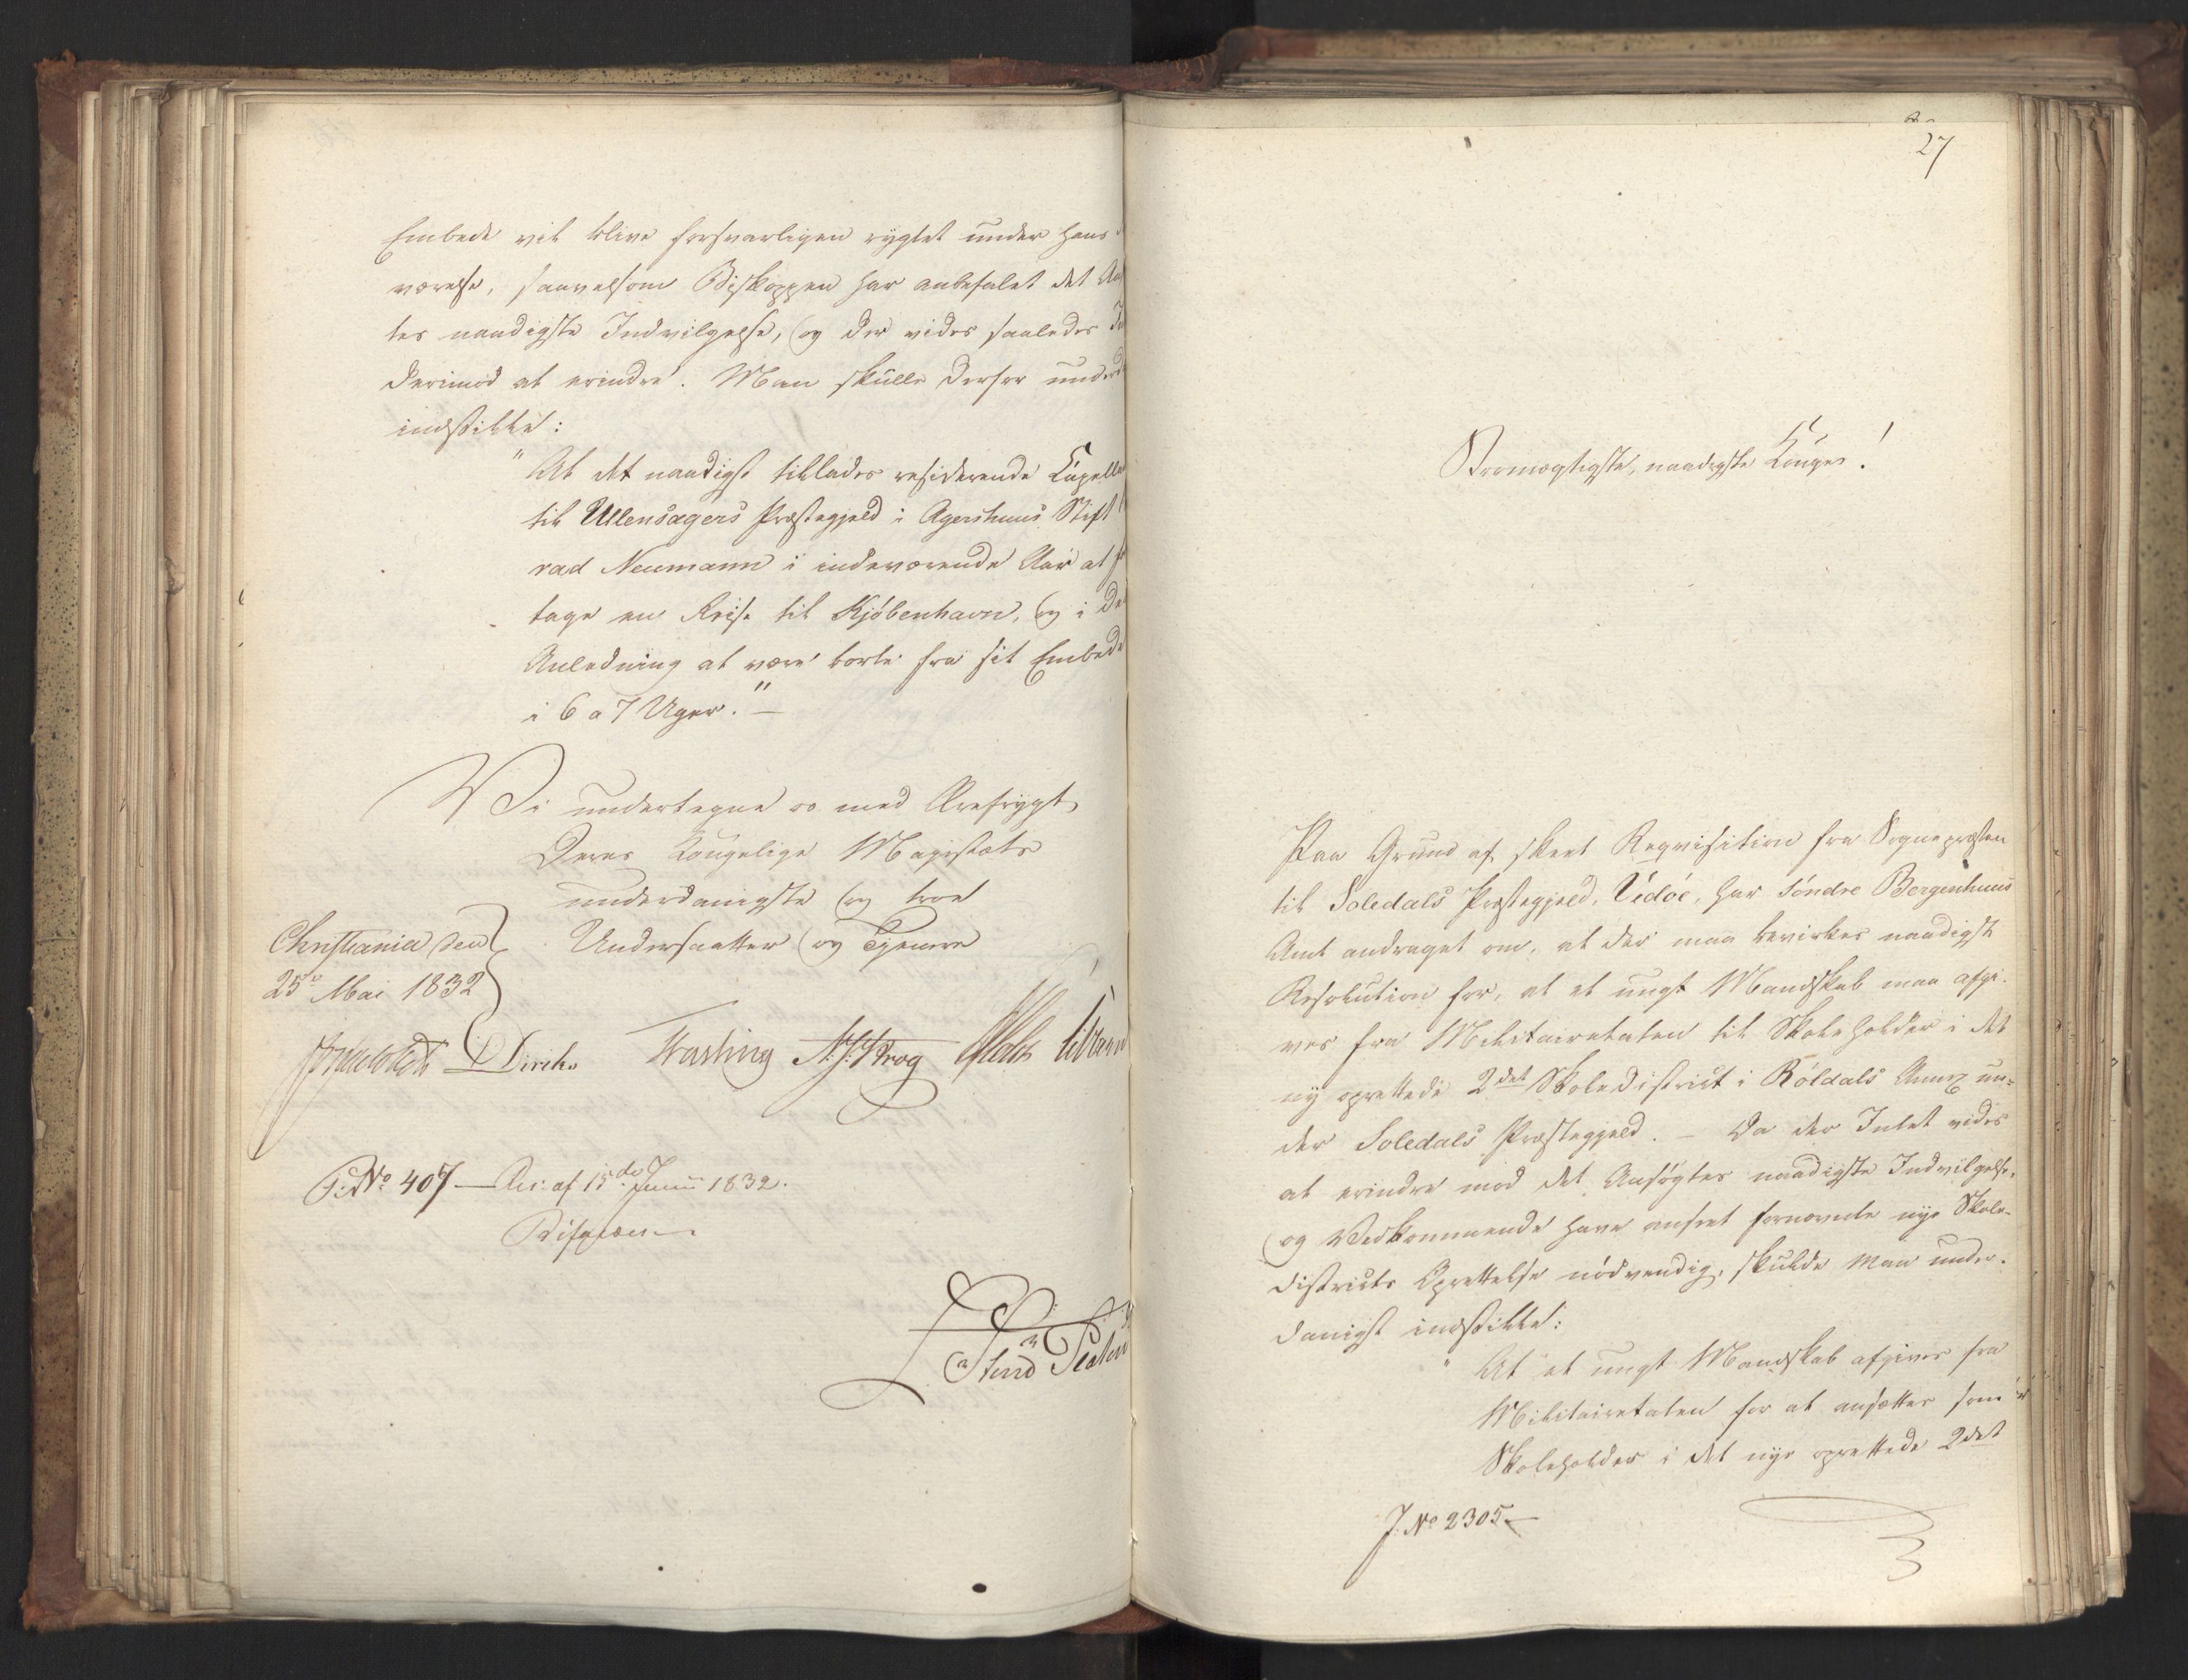 Embede vil blive forsvarligen rygtet under hans
værelse, saavelsom Biskoppen har anbefalet det An
tes naadigste Indvilgelse, og der vides saaledes In
derimod at erindre. Man skulle derfor underd
indstille:
"At det naadigst tillades residerende Capella
til Ullensagers Præstegjeld i Agershuus Stift
rad Neumann i indeværende Aar at fo
tage en Reise til Kjöbenhavn, og i de
Anledning at være borte fra sit Embede
i 6 a 7 Uger."—
Vi undertegne os med Ærefrygt
Deres Kongelige Majestæts
underdanigste og troe
Undersaatter og Tjenere
Christiania den
25de Mai 1832
Diriks Fasting Krog
P: No 407 — Res: af 15de Junii 1832.
Bifalden
Platen
27
Stormægtigste, naadigste Konge!
Paa Grund af skeet Reqvisition fra Sognepræsten
til Soledals Præstegjeld, Uidöe, har Söndre Bergenhuus
Amt andraget om, at der maa bevirkes naadigst
Resolution for, at et ungt Mandskab maa afgi-
ves fra Militairetaten til Skoleholder i det
ny oprettede 2det Skoledistrict i Röldals Annex un-
der Soledals Præstegjeld. — Da der Intet vides
at erindre mod det Ansögtes naadigste Indvilgelse,
og Vedkommende have anseet fornævnte nye Skole-
districts Oprettelse nödvendig, skulde man under-
danigst indstille:
"At et ungt Mandskab afgives fra
Militairetaten for at ansættes som
Skoleholder i det nye oprettede 2det
J. No 2305